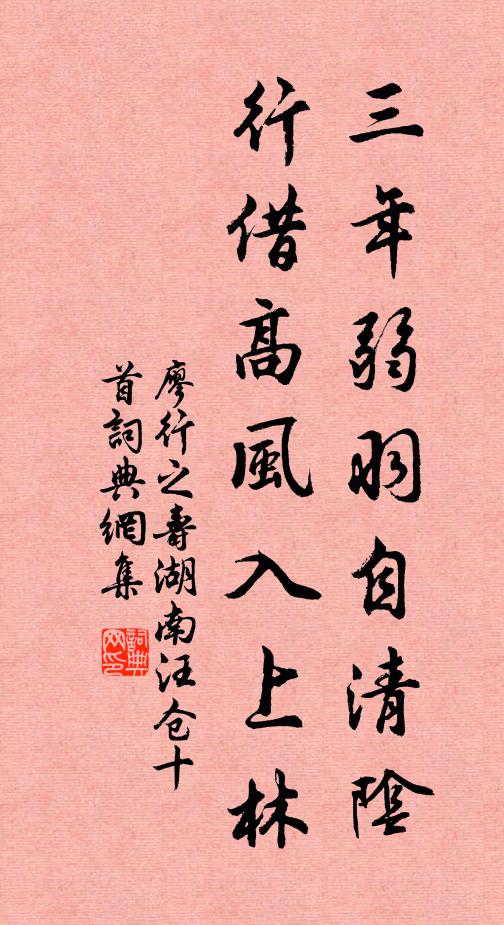 三年弱羽自清陰
行借高風入上林
廖行之壽湖南汪仓十
首詞典網集
詞典网印